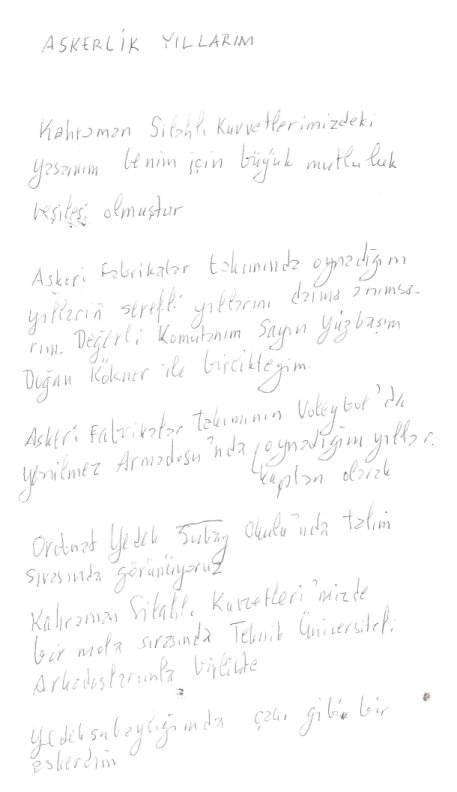 ASKERLİK YILLARIM
Kahraman Silahlı Kuvvetlerimizdeki
yaşamım benim için büyük mutluluk
vesilesi olmuştur
Askeri Fabrikalar takımında oynadığım
yılların şerefli yıllarını daima anımsa-
rım. Değerli Komutanım Sayın Yüzbaşım
Doğan Kökner ile birlikteyim.
Askeri Fabrikalar takımının Voleybol'da
yenilmez Armadası'nda oynadığım yıllar.
kaptan olarak
Ordonat Yedek Subay Okulu'nda talim
sırasında görünüyoruz
Kahraman Silahlı Kuvvetleri'mizde
bir mola sırasında Teknik Üniversiteli
Arkadaşlarımla birlikte
Yedeksubaylığımda çakı gibi bir
askerdim